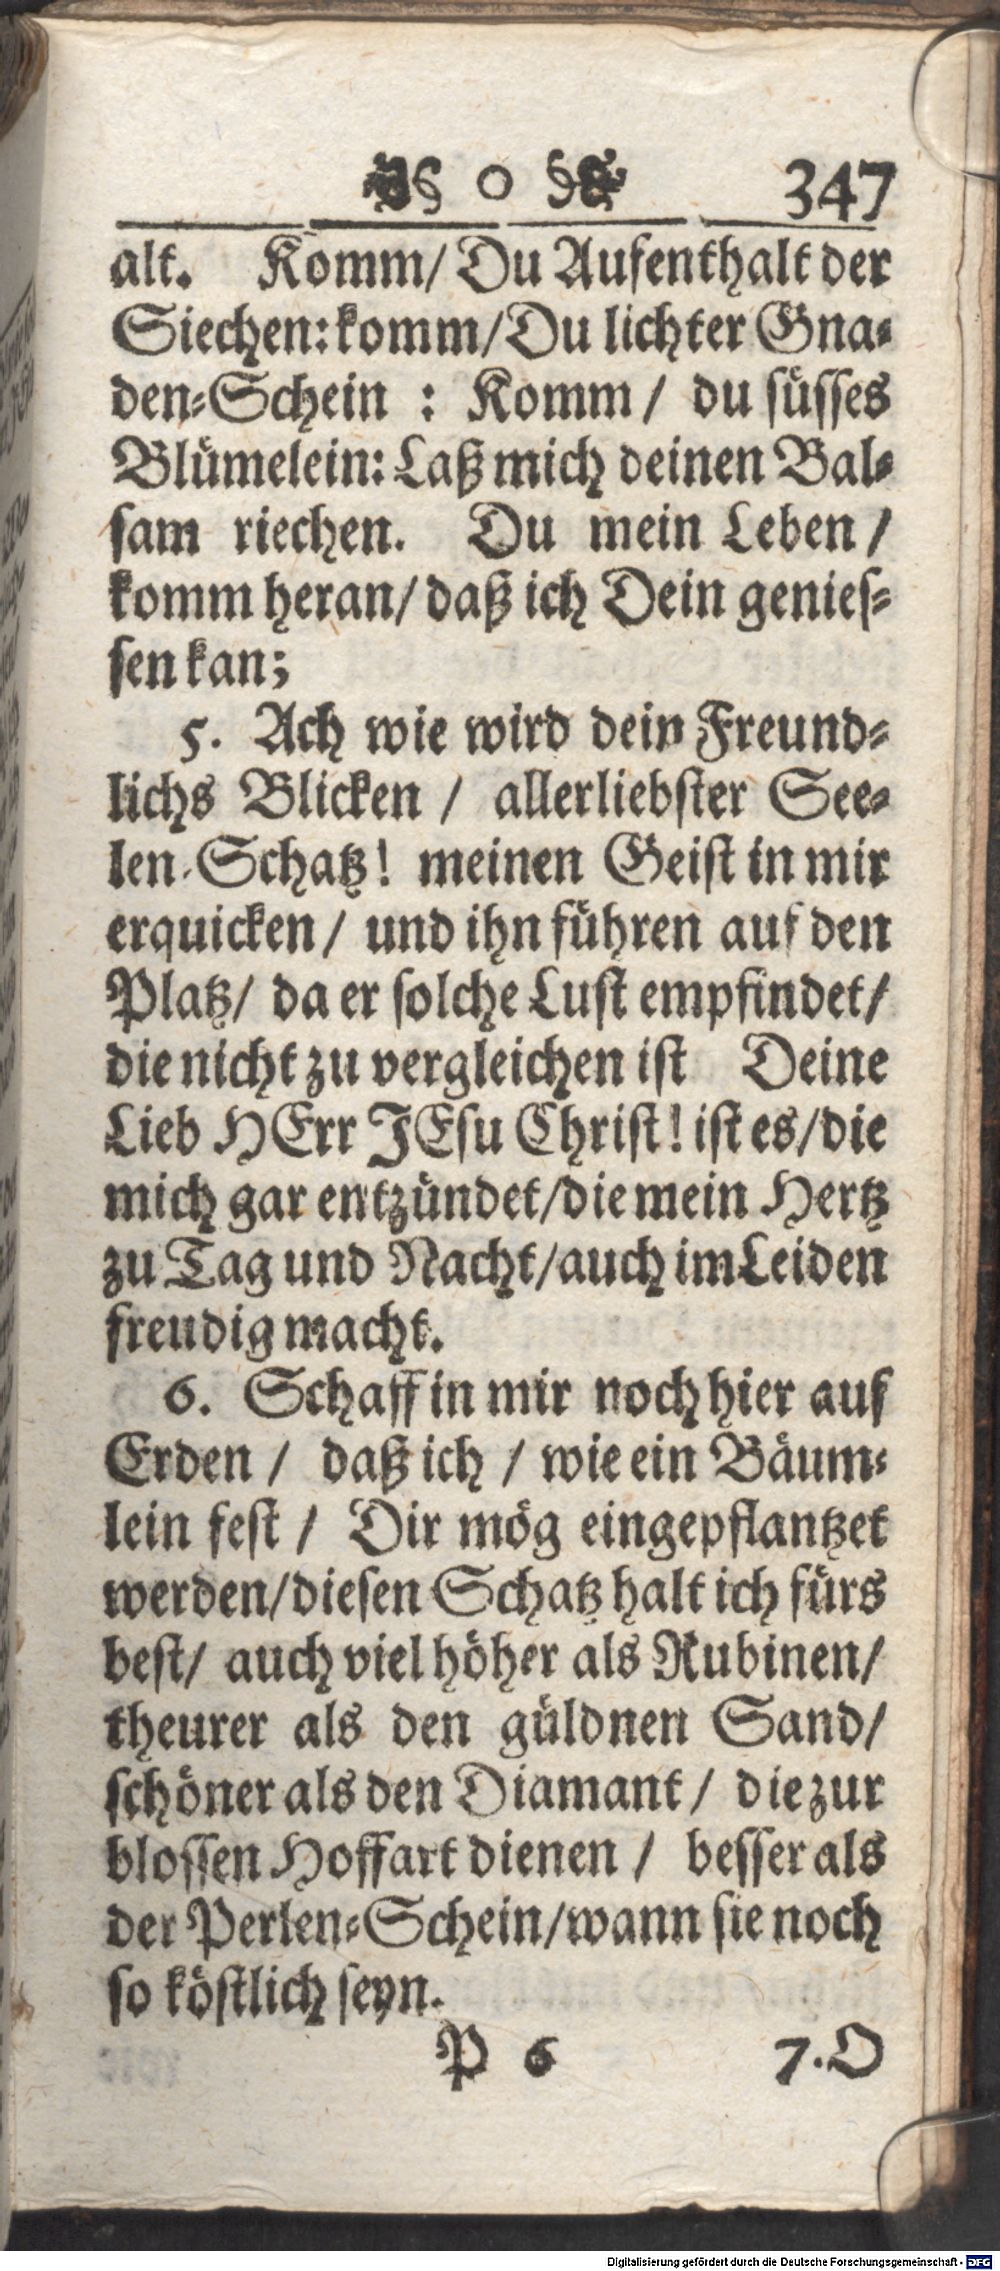 § o § 347
alt. Komm/ Du Aufenthalt der
Siechen: komm/Du lichter Gna-
den-Schein : Komm / du süsses
Blümelein: Laß mich deinen Bal-
sam riechen. Du mein Leben /
komm heran/ daß ich Dein genies-
sen kan;
5. Ach wie wird dein Freund-
lichs Blicken / allerliebster See-
len-Schatz! meinen Geist in mir
erquicken / und ihn führen auf den
Platz/ da er solche Lust empfindet/
die nicht zu vergleichen ist Deine
Lieb HErr JEsu Christ! ist es/die
mich gar entzündet/die mein Hertz
zu Tag und Nacht/auch im Leiden
freudig macht.
6. Schaff in mir noch hier auf
Erden / daß ich / wie ein Bäum-
lein fest / Dir mög eingepflantzet
werden/diesen Schatz halt ich fürs
best/ auch viel höher als Rubinen/
theurer als den güldnen Sand/
schöner als den Diamant / die zur
blossen Hoffart dienen / besser als
der Perlen-Schein/wann sie noch
so köstlich seyn.
P 6 7. O
Digitalisierung gefördert durch die Deutsche Forschungsgemeinschaft - DFG